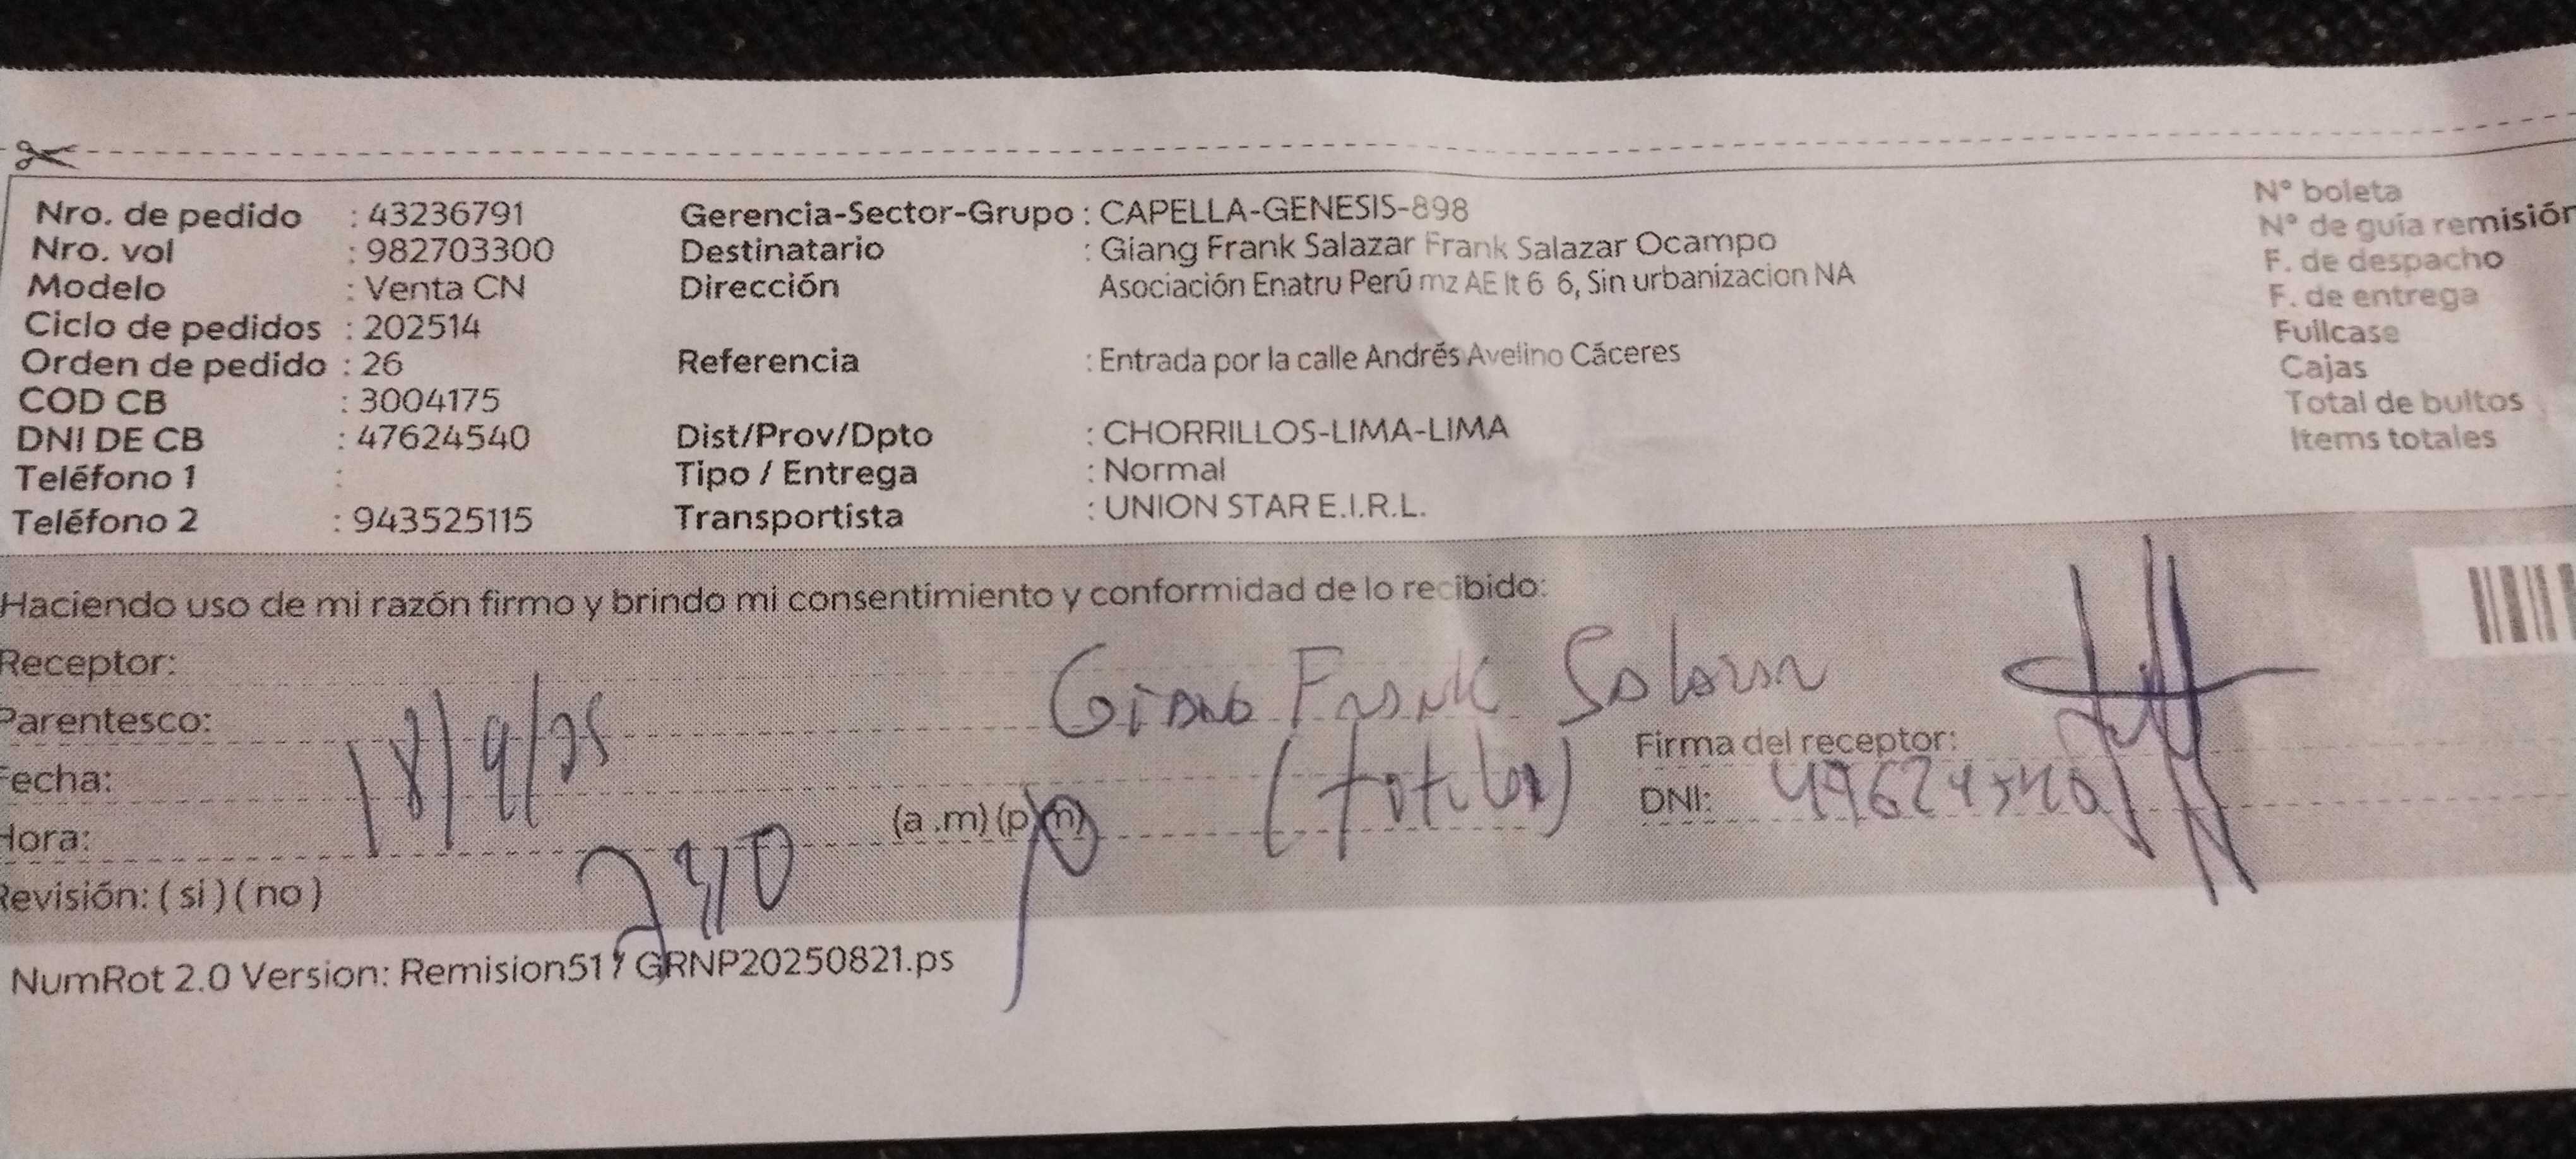 Nro. de pedido : 43236791 Gerencia-Sector-Grupo : CAPELLA-GENESIS-898 N° boleta
Nro. vol : 982703300 Destinatario : Giang Frank Salazar Frank Salazar Ocampo N° de guía remisión
Modelo : Venta CN Dirección Asociación Enatru Perú mz AE lt 6 6, Sin urbanizacion NA F. de despacho
Ciclo de pedidos : 202514 F. de entrega
Orden de pedido : 26 Referencia : Entrada por la calle Andrés Avelino Cáceres Fullcase
COD CB : 3004175 Cajas
DNI DE CB : 47624540 Dist/Prov/Dpto : CHORRILLOS-LIMA-LIMA Total de bultos
Teléfono 1 : Tipo / Entrega : Normal Items totales
Teléfono 2 : 943525115 Transportista : UNION STAR E.I.R.L.
Haciendo uso de mi razón firmo y brindo mi consentimiento y conformidad de lo recibido:
Receptor: Giang Frank Salazar
Parentesco: (titular) Firma del receptor:
Fecha: 18/9/25 DNI: 47624540
Hora: (a .m) (p.m)
Revisión: ( si ) ( no )
NumRot 2.0 Version: Remision517 GRNP20250821.ps